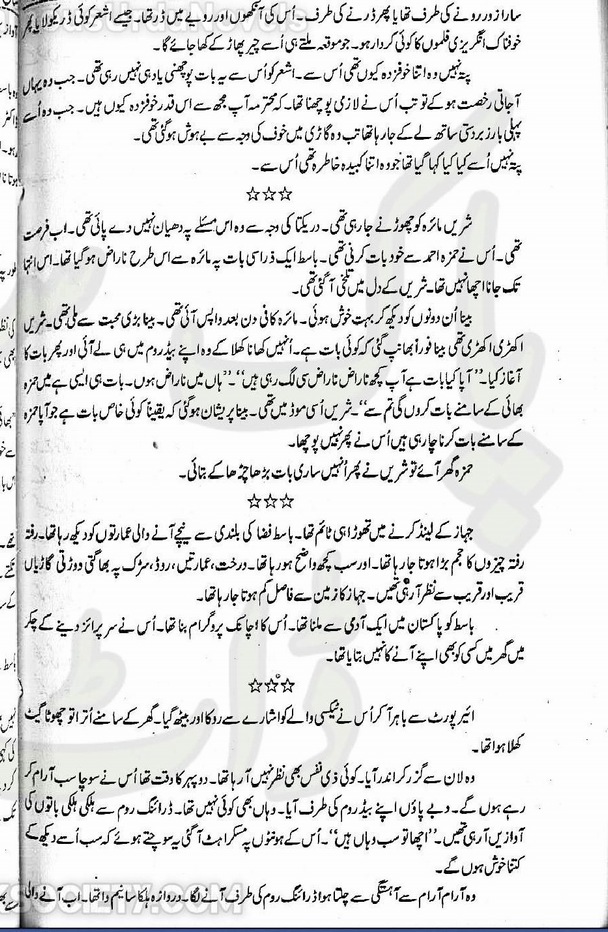 سارا زور رونے کی طرف تھا یا پھر ڈرنے کی طرف۔ اُس کی آنکھوں اور رویے میں ڈر تھا۔ جیسے اشعر کوئی ڈریکولا یا پھر
خوفناک انگریزی فلموں کا کوئی کردار ہو۔ جو موقعہ ملتے ہی اُسے چیر پھاڑ کے کھا جائے گا۔
پتہ نہیں وہ اتنا خوفزدہ کیوں تھی اُس سے۔ اشعر کو اُس سے یہ بات پوچھنی یاد ہی نہیں رہی تھی۔ جب وہ یہاں
آ جاتی رخصت ہو کے تو تب اُس نے لازمی پوچھنا تھا۔ کہ محترمہ آپ مجھ سے اس قدر خوفزدہ کیوں ہیں۔ جب وہ اُسے
پہلی بار زبردستی ساتھ لے کے جا رہا تھا تب وہ گاڑی میں خوف کی وجہ سے بے ہوش ہو گئی تھی۔
پتہ نہیں اُسے کیا کیا کہا گیا تھا جو وہ اتنا کبیدہ خاطر تھی اُس سے۔
☆☆☆
شریں مائرہ کو چھوڑنے جا رہی تھی۔ دریکتا کی وجہ سے وہ اس مسئلے پہ دھیان نہیں دے پائی تھی۔ اب فرصت
تھی۔ اُس نے حمزہ احمد سے خود بات کرنی تھی۔ باسط ایک ذرا سی بات پہ مائرہ سے اس طرح ناراض ہو گیا تھا۔ اس انتہا
تک جانا اچھا نہیں تھا۔ شریں کے دل میں تلخی آ گئی تھی۔
بینا اُن دونوں کو دیکھ کر بہت خوش ہوئی۔ مائرہ کافی دن بعد واپس آئی تھی۔ بینا بڑی محبت سے ملی تھی۔ شریں
اکھڑی اکھڑی تھی بینا فوراً بھانپ گئی کہ کوئی بات ہے۔ اُنہیں کھانا کھلا کے وہ اپنے بیڈ روم میں ہی لے آئی اور پھر بات کا
آغاز کیا۔ ”آپا کیا بات ہے آپ کچھ ناراض ناراض سی لگ رہی ہیں“۔ ”ہاں میں ناراض ہوں۔ بات ہی ایسی ہے میں حمزہ
بھائی کے سامنے بات کروں گی تم سے“۔ شریں اُسی موڈ میں تھی۔ بینا پریشان ہو گئی کہ یقیناً کوئی خاص بات ہے جو آپا حمزہ
کے سامنے بات کرنا چاہ رہی ہیں اُس نے پھر نہیں پوچھا۔
حمزہ گھر آئے تو شریں نے پھر اُنہیں ساری بات بڑھا چڑھا کے بتائی۔
☆☆☆
جہاز کے لینڈ کرنے میں تھوڑا ہی ٹائم تھا۔ باسط فضا کی بلندی سے نیچے آنے والی عمارتوں کو دیکھ رہا تھا۔ رفتہ
رفتہ چیزوں کا حجم بڑا ہوتا جا رہا تھا۔ اور سب کچھ واضح ہو رہا تھا۔ درخت، عمارتیں، روڈ، سڑک پہ بھاگتی دوڑتی گاڑیاں
قریب اور قریب سے نظر آ رہی تھیں۔ جہاز کا زمین سے فاصل کم ہوتا جا رہا تھا۔
باسط کو پاکستان میں ایک آدمی سے ملنا تھا۔ اُس کا اچانک پروگرام بنا تھا۔ اُس نے سرپرائز دینے کے چکر
میں گھر میں کسی کو بھی اپنے آنے کا نہیں بتایا تھا۔
☆☆☆
ائیرپورٹ سے باہر آ کر اُس نے ٹیکسی والے کو اشارے سے روکا اور بیٹھ گیا۔ گھر کے سامنے اُترا تو چھوٹا گیٹ
کھلا ہوا تھا۔
وہ لان سے گزر کر اندر آیا۔ کوئی ذی نفس بھی نظر نہیں آ رہا تھا۔ دوپہر کا وقت تھا اُس نے سوچا سب آرام کر
رہے ہوں گے۔ وہ دبے پاؤں اپنے بیڈ روم کی طرف آیا۔ وہاں بھی کوئی نہیں تھا۔ ڈرائنگ روم سے ہلکی ہلکی باتوں کی
آوازیں آ رہی تھیں۔ ”اچھا تو سب وہاں ہیں“۔ اُس کے ہونٹوں پہ مسکراہٹ آ گئی یہ سوچتے ہوئے کہ سب اُسے دیکھ کے
کتنا خوش ہوں گے۔
وہ آرام آرام سے آہستگی سے چلتا ہوا ڈرائنگ روم کی طرف آنے لگا۔ دروازہ ہلکا سا نیم وا تھا۔ اب آنے والی